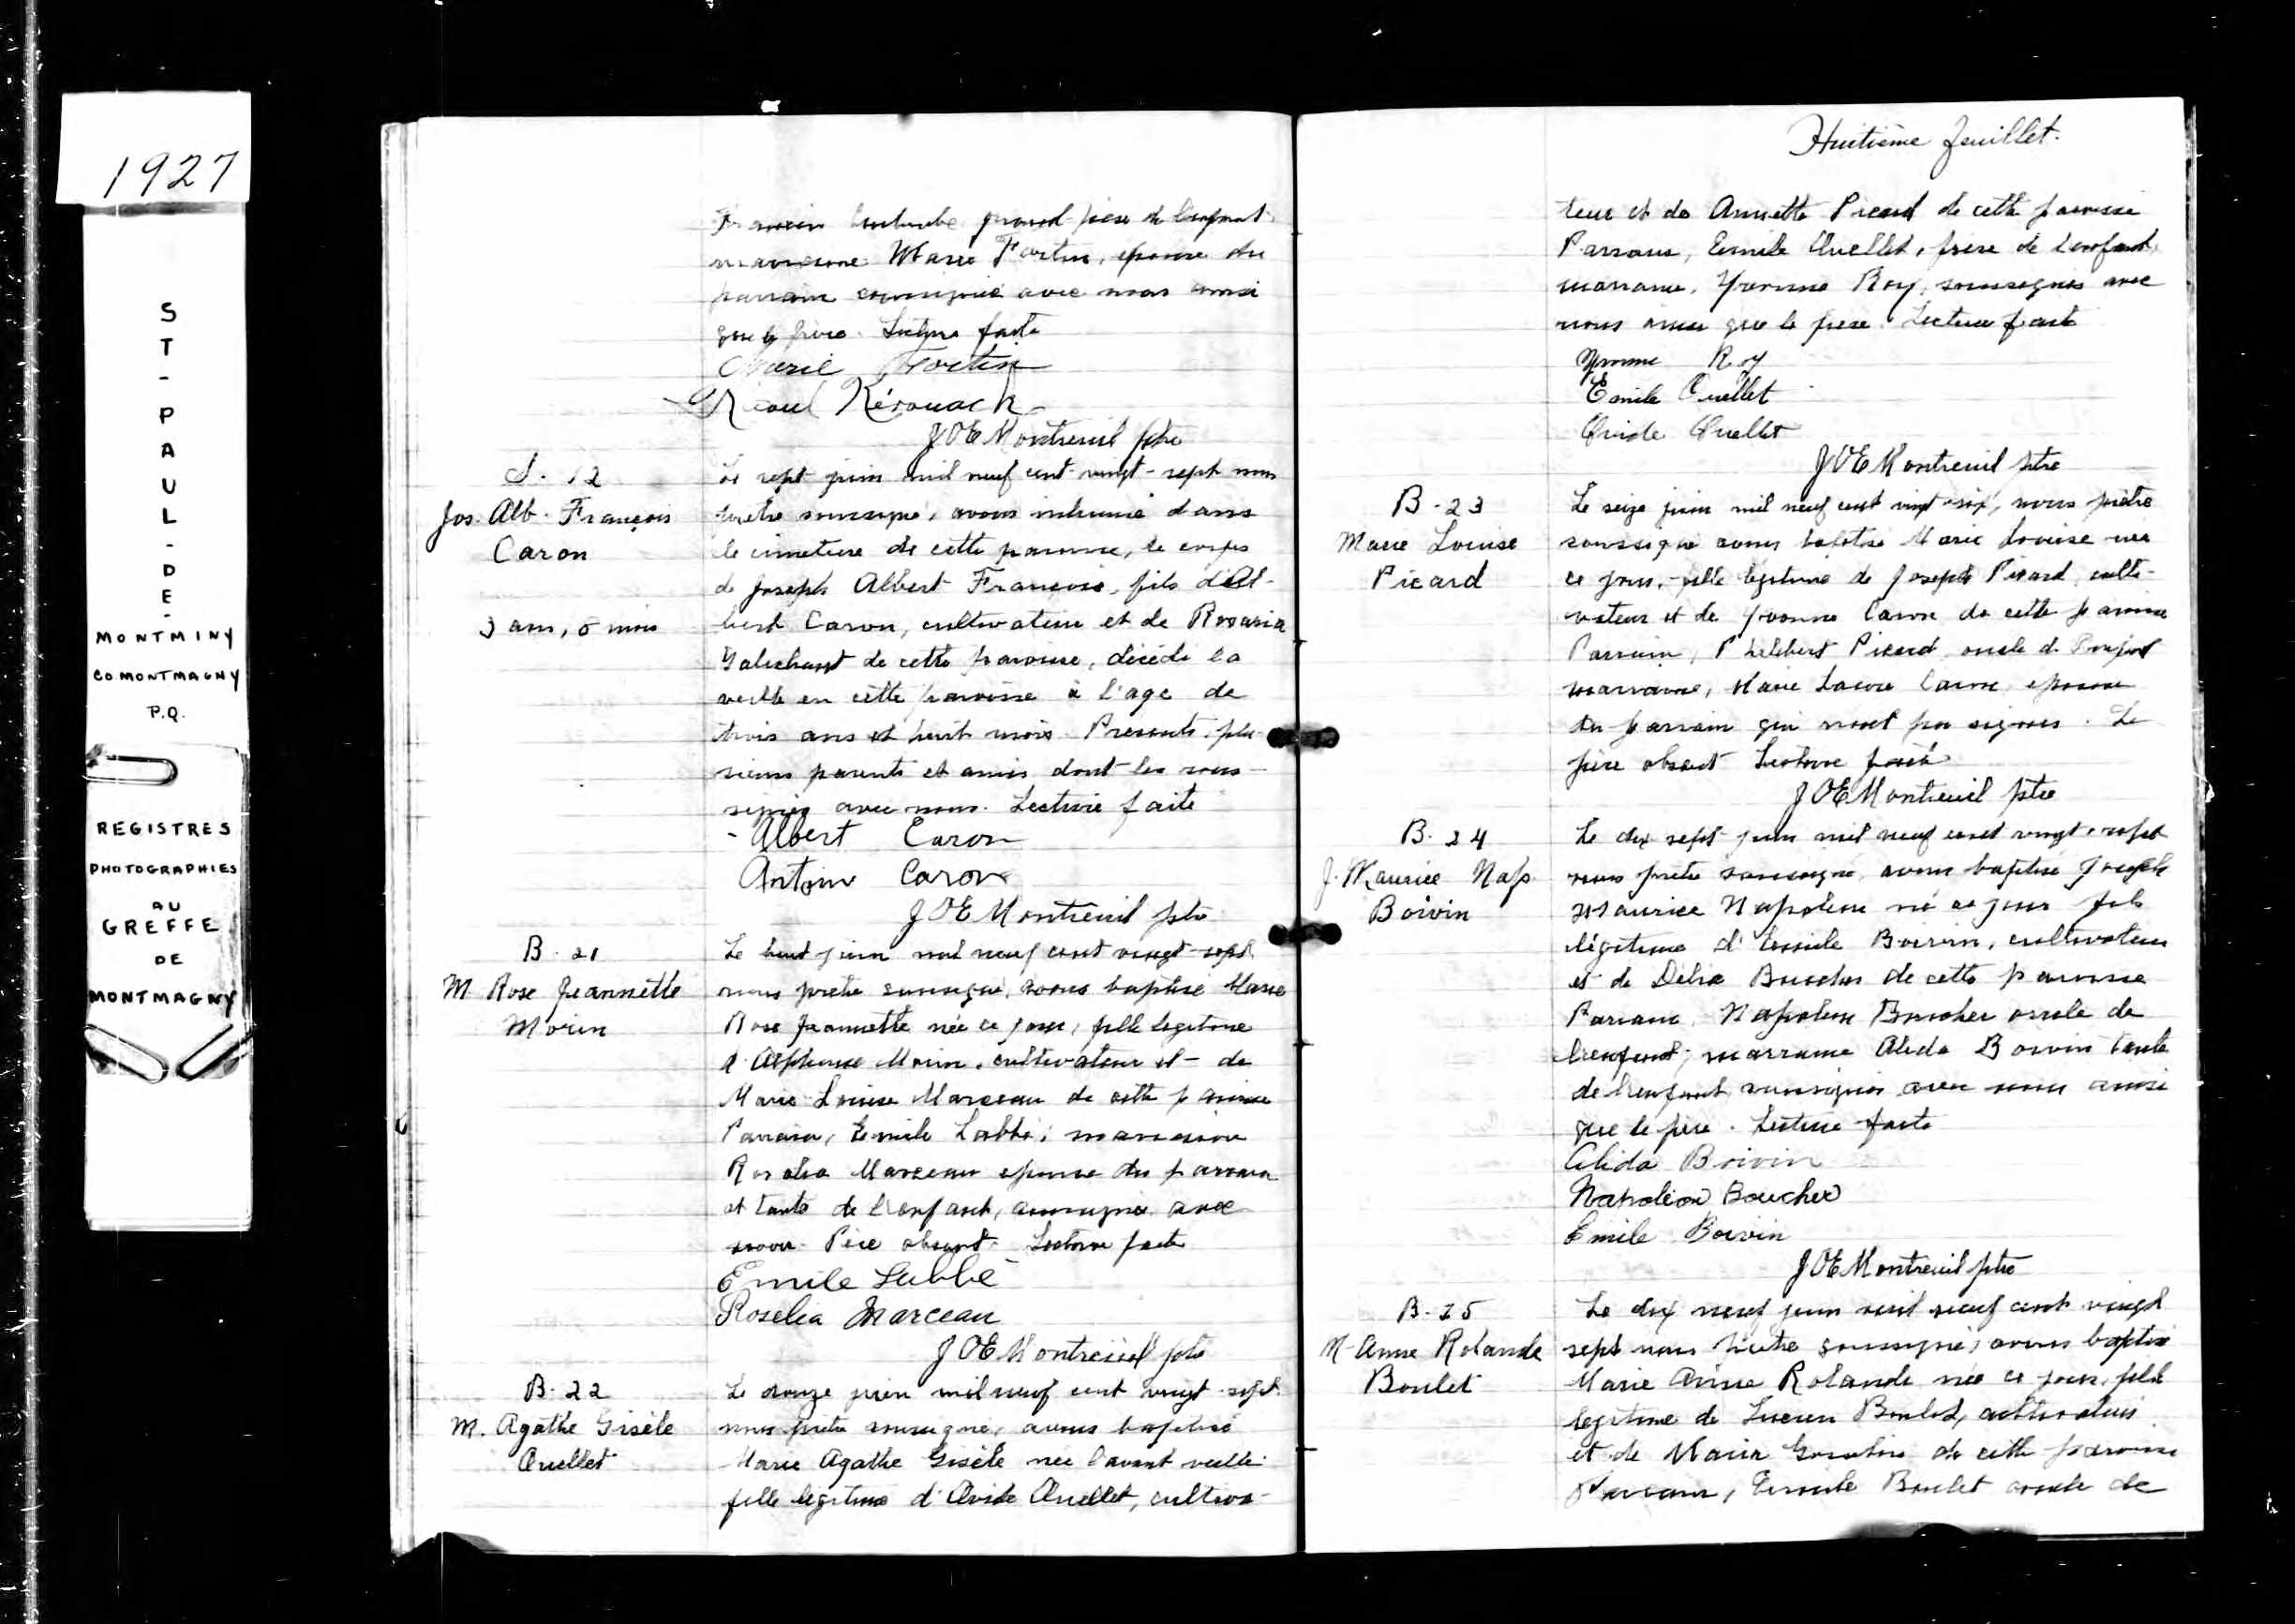 1927
ST-PAUL-DE-
MONTMINY
CO MONTMAGNY
P.Q.
REGISTRES
PHOTOGRAPHIES
AU
GREFFE
DE
MONTMAGNY
grand-père de l'enfant
marraine Marie Fortin, epouse du
parrain avec nous ainsi
que le père. Lecture faite
Marie Fortin
Raoul Kérouack
JOE Montreuil ptre
S. 12
Jos. Alb. François
Caron
3 ans, 8 mois
Le sept juin mil neuf cent vingt-sept nous
prêtre soussigné, avons inhumé dans
le cimetière de cette paroisse, le corps
de Joseph Albert François, fils d'Al-
bert Caron, cultivateur et de Rosaria
de cette paroisse, décédé la
veille en cette paroisse à l'age de
trois ans et huit mois Presents plu-
sieurs parents et amis dont les sous-
signés avec nous. Lecture faite
Albert Caron
Antoine Caron
JOE Montreuil ptre
B. 21
M Rose Jeannette
Morin
Le huit juin mil neuf cent vingt-sept
nous pretre soussigné, avons baptisé Marie
Rose Jeannette née ce jour, fille legitime
d'Alphonse Morin, cultivateur et de
Marie-Louise Marceau de cette paroisse
Parrain, Emile Labbé; marraine
Rosalia Marceau epouse du parrain
et tante de l'enfant, soussignés avec
nous. Père absent. Lecture faite
Emile Labbé
Roselea Marceau
JOE Montreuil ptre
B. 22
M. Agathe Gisèle
Ouellet
Le douze juin mil neuf cent vingt-sept
nous pretre soussigné, avons baptisé
Marie Agathe Gisèle née l'avant veille
fille legitime d'Ovide Ouellet, cultiva-
Huitième feuillet.
teur et de Annette Picard de cette paroisse
Parrain, Emile Ouellet, frère de l'enfant,
marraine, Yvonne Roy, soussignés avec
nous ainsi que le père. Lecture faite
Yvonne Roy
Emile Ouellet
Ovide Ouellet
JOE Montreuil ptre
B. 23
Marie Louise
Picard
Le seize juin mil neuf cent vingt-six, nous prêtre
soussigné avons baptisé Marie Louise née
ce jour, fille légitime de Joseph Picard, culti-
vateur et de Yvonne Caron de cette paroisse
Parrain, Philibert Picard oncle de l'enfant
marraine, Marie Caron, epouse
du parrain qui n'ont pu signer. Le
père absent Lecture faite
JOE Montreuil ptre
B. 24
J. Maurice Nap.
Boivin
Le dix sept juin mil neuf cent vingt-sept
nous pretre soussigné, avons baptisé Joseph
Maurice Napoleon né ce jour fils
légitime d'Emile Boivin, cultivateur
et de Delia Boucher de cette paroisse
Parrain, Napoleon Boucher oncle de
l'enfant; marraine Alida Boivin tante
de l'enfant soussignés avec nous ainsi
que le père. Lecture faite
Alida Boivin
Napoléon Boucher
Emile Boivin
JOE Montreuil ptre
B. 25
M-Anne Rolande
Boulet
Le dix neuf juin mil neuf cent vingt
sept nous prêtre soussigné, avons baptisé
Marie Anne Rolande née ce jour, fille
legitime de Lucien Boulet, cultivateur
et de Maria de cette paroisse
Parrain, Boulet oncle de